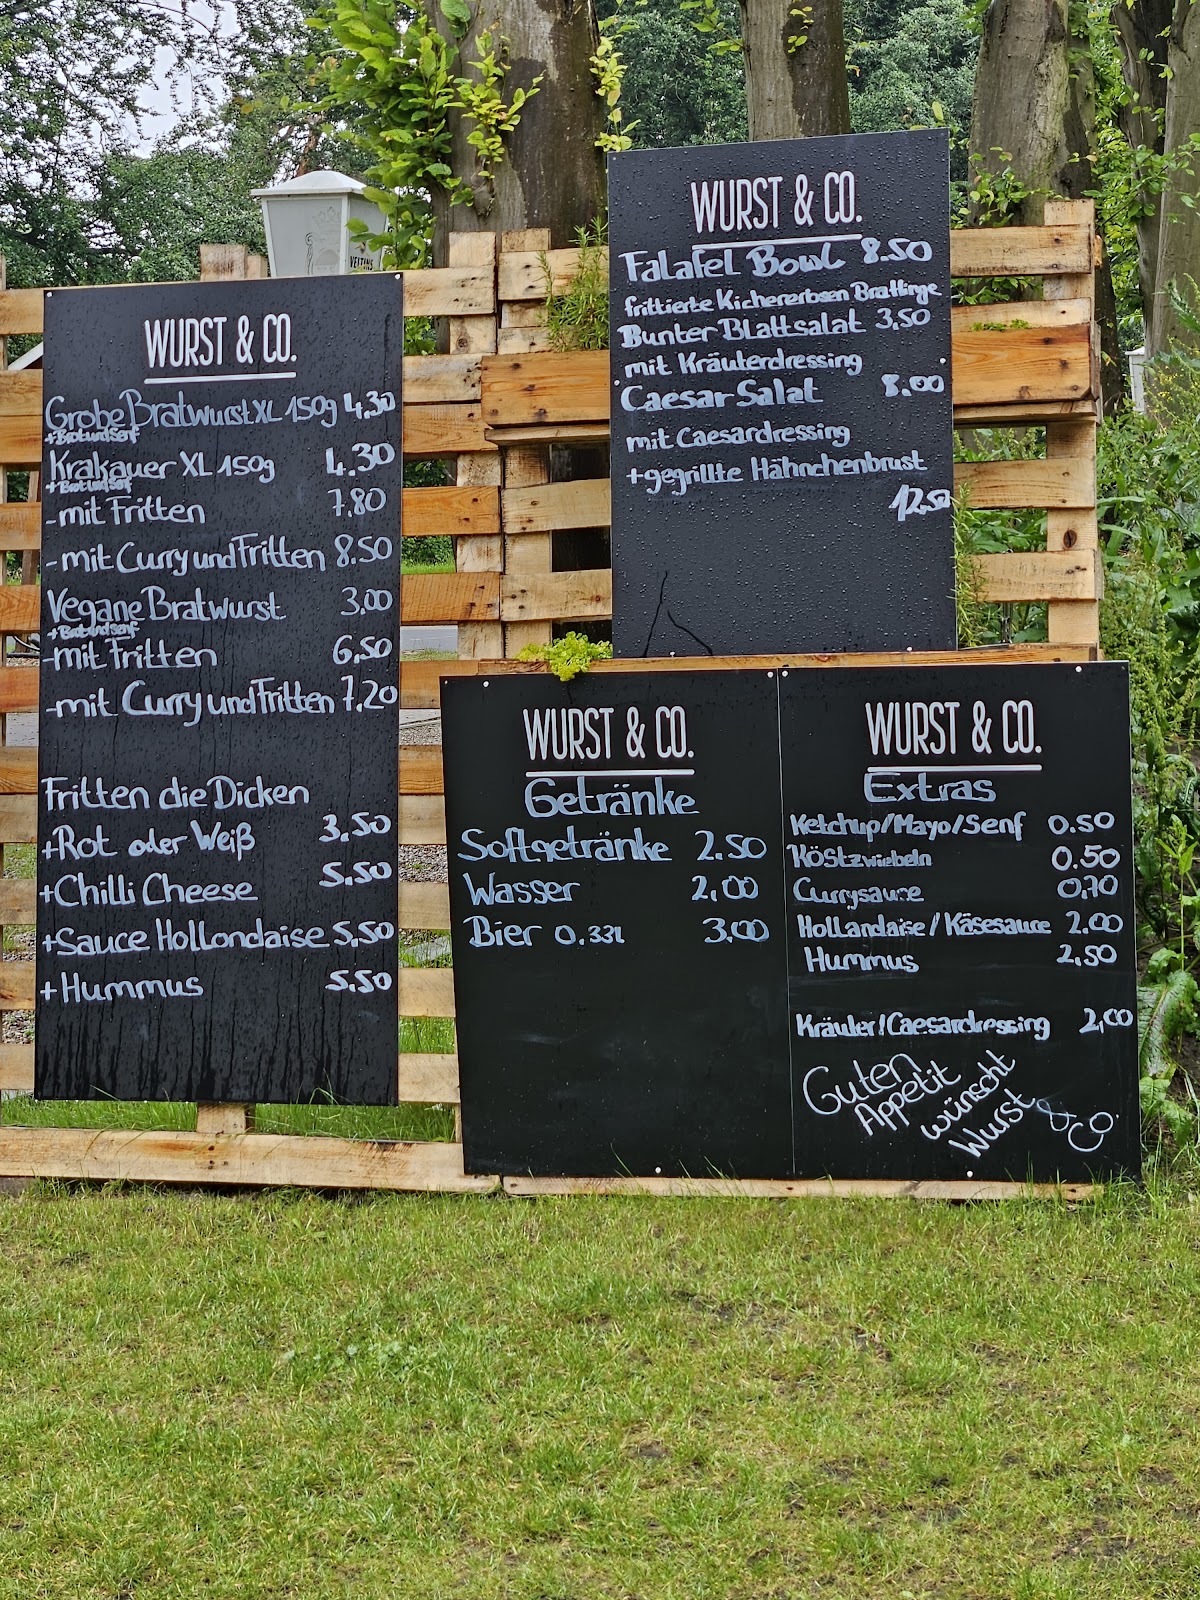 WURST & CO.
Grobe Bratwurst XL 150g 4,30
+Brot und Senf
Krakauer XL 150g 4.30
+Brot und Senf
-mit Fritten 7.80
-mit Curry und Fritten 8.50
Vegane Bratwurst 3.00
+Brot und Senf
-mit Fritten 6,50
-mit Curry und Fritten 7.20
Fritten die Dicken
+Rot oder Weiß 3,50
+Chilli Cheese 5.50
+Sauce Hollondaise 5,50
+Hummus 5.50
WURST & CO.
Falafel Bowl 8.50
frittierte Kichererbsen Bratlinge
Bunter Blattsalat 3,50
mit Kräuterdressing
Caesar Salat 8.00
mit Caesardressing
+gegrillte Hähnchenbrust
12,50
WURST & CO.
Getränke
Softgetränke 2.50
Wasser 2,00
Bier 0.33L 3.00
WURST & CO.
Extras
Ketchup/Mayo/Senf 0.50
Röstzwiebeln 0.50
Currysauce 0,70
Hollandaise / Käsesauce 2.00
Hummus 2,50
Kräuter/Caesardressing 2,00
Guten
Appetit
wünscht
Wurst & Co.
VELTINS